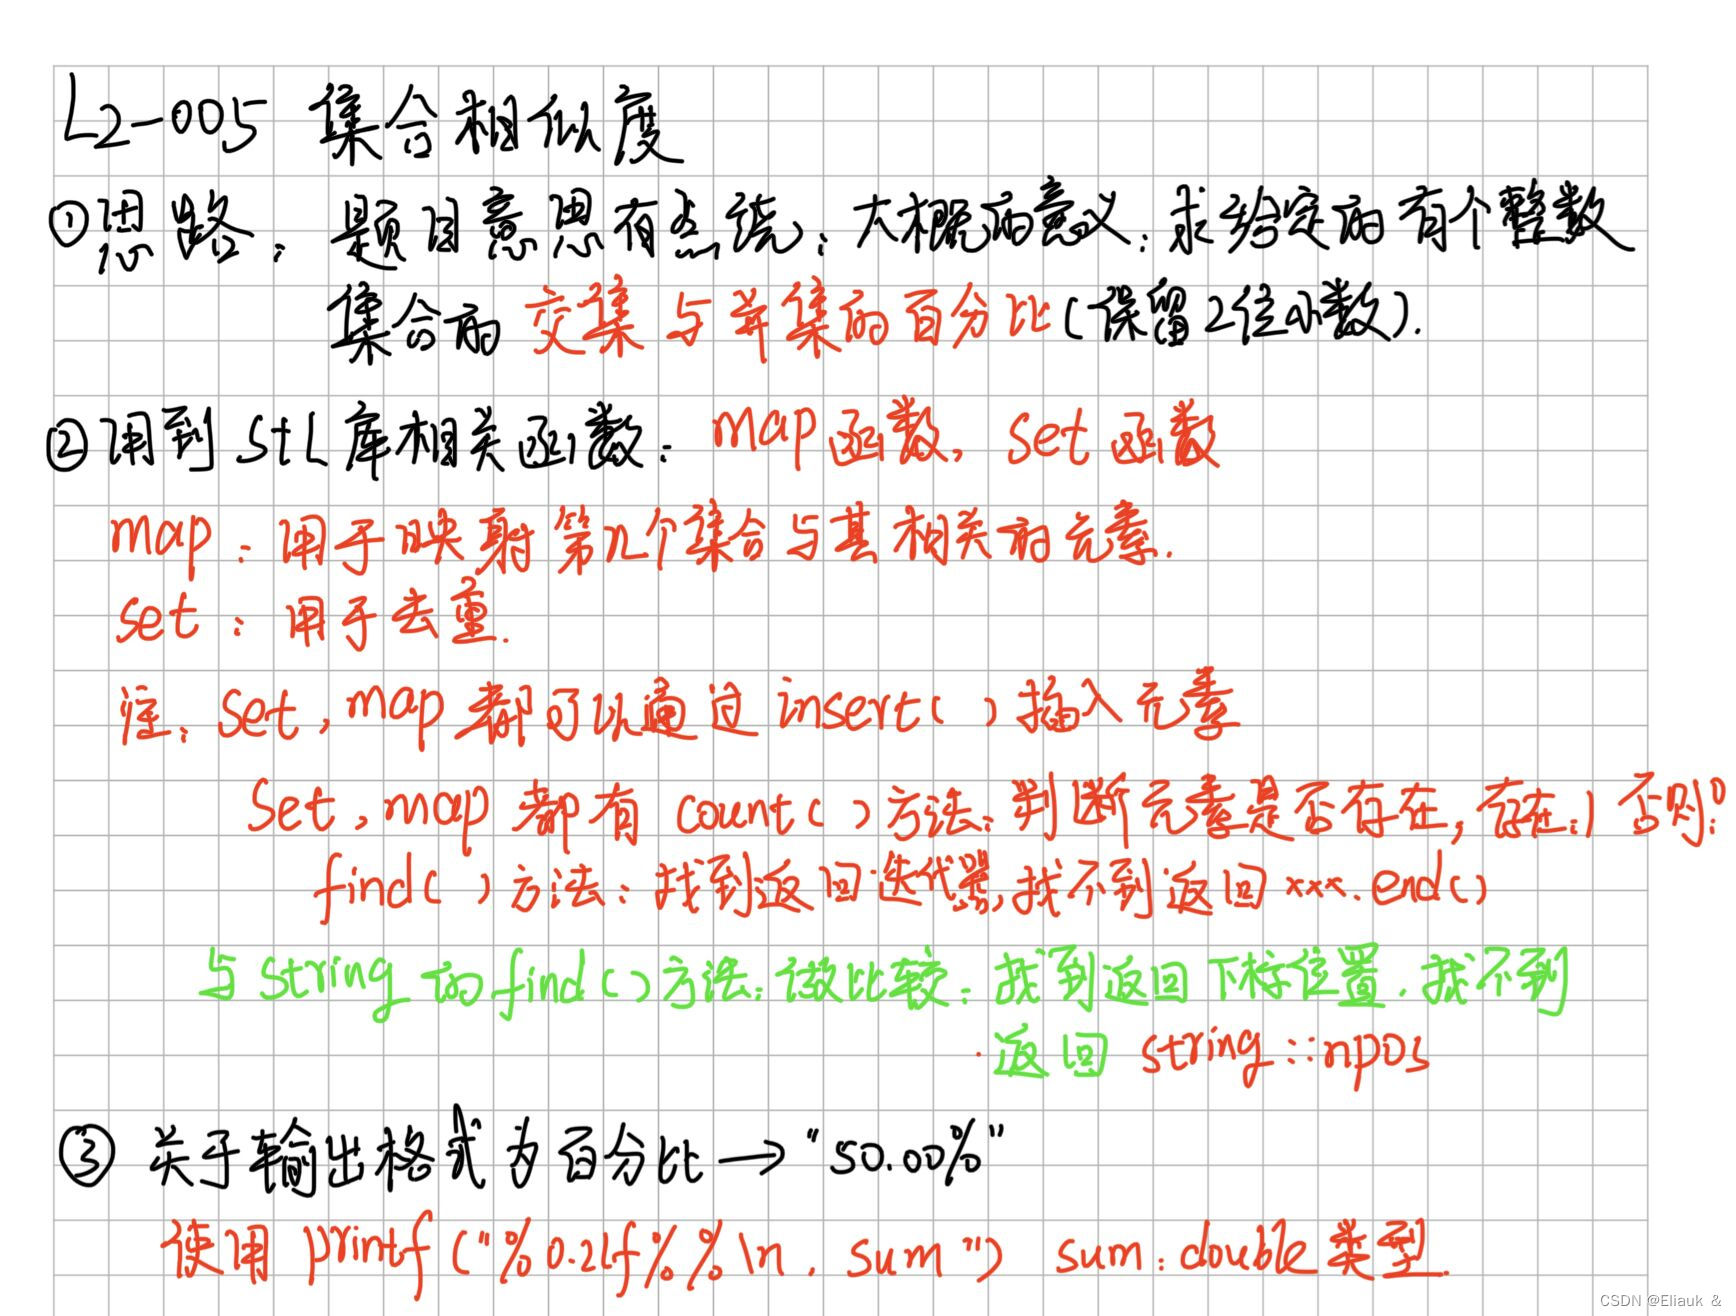 L2-005 集合相似度
①思路：题目意思有点绕；大概的意义：求给定的有个整数
集合的交集与并集的百分比(保留2位小数).
②用到STL库相关函数：map函数，set函数
map：用于映射第n个集合与其相关的元素.
set：用于去重.
注：set，map都可以通过insert()插入元素
set，map都有count()方法：判断元素是否存在，存在:1 否则:0
find()方法：找到返回迭代器，找不到返回xxx.end()
与string的find()方法：做比较：找到返回下标位置，找不到
返回 string::npos
③ 关于输出格式为百分比→"50.00%"
使用printf("%0.2lf%%\n, sum") sum：double类型.
CSDN @Eliauk &